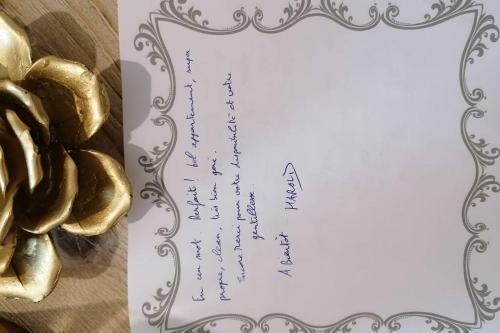 En un mot. Parfait! bel appartement, super
propre, clean, très bien géré.
Encore merci pour votre disponibilité et votre
gentillesse.
A bientôt
HAROLD